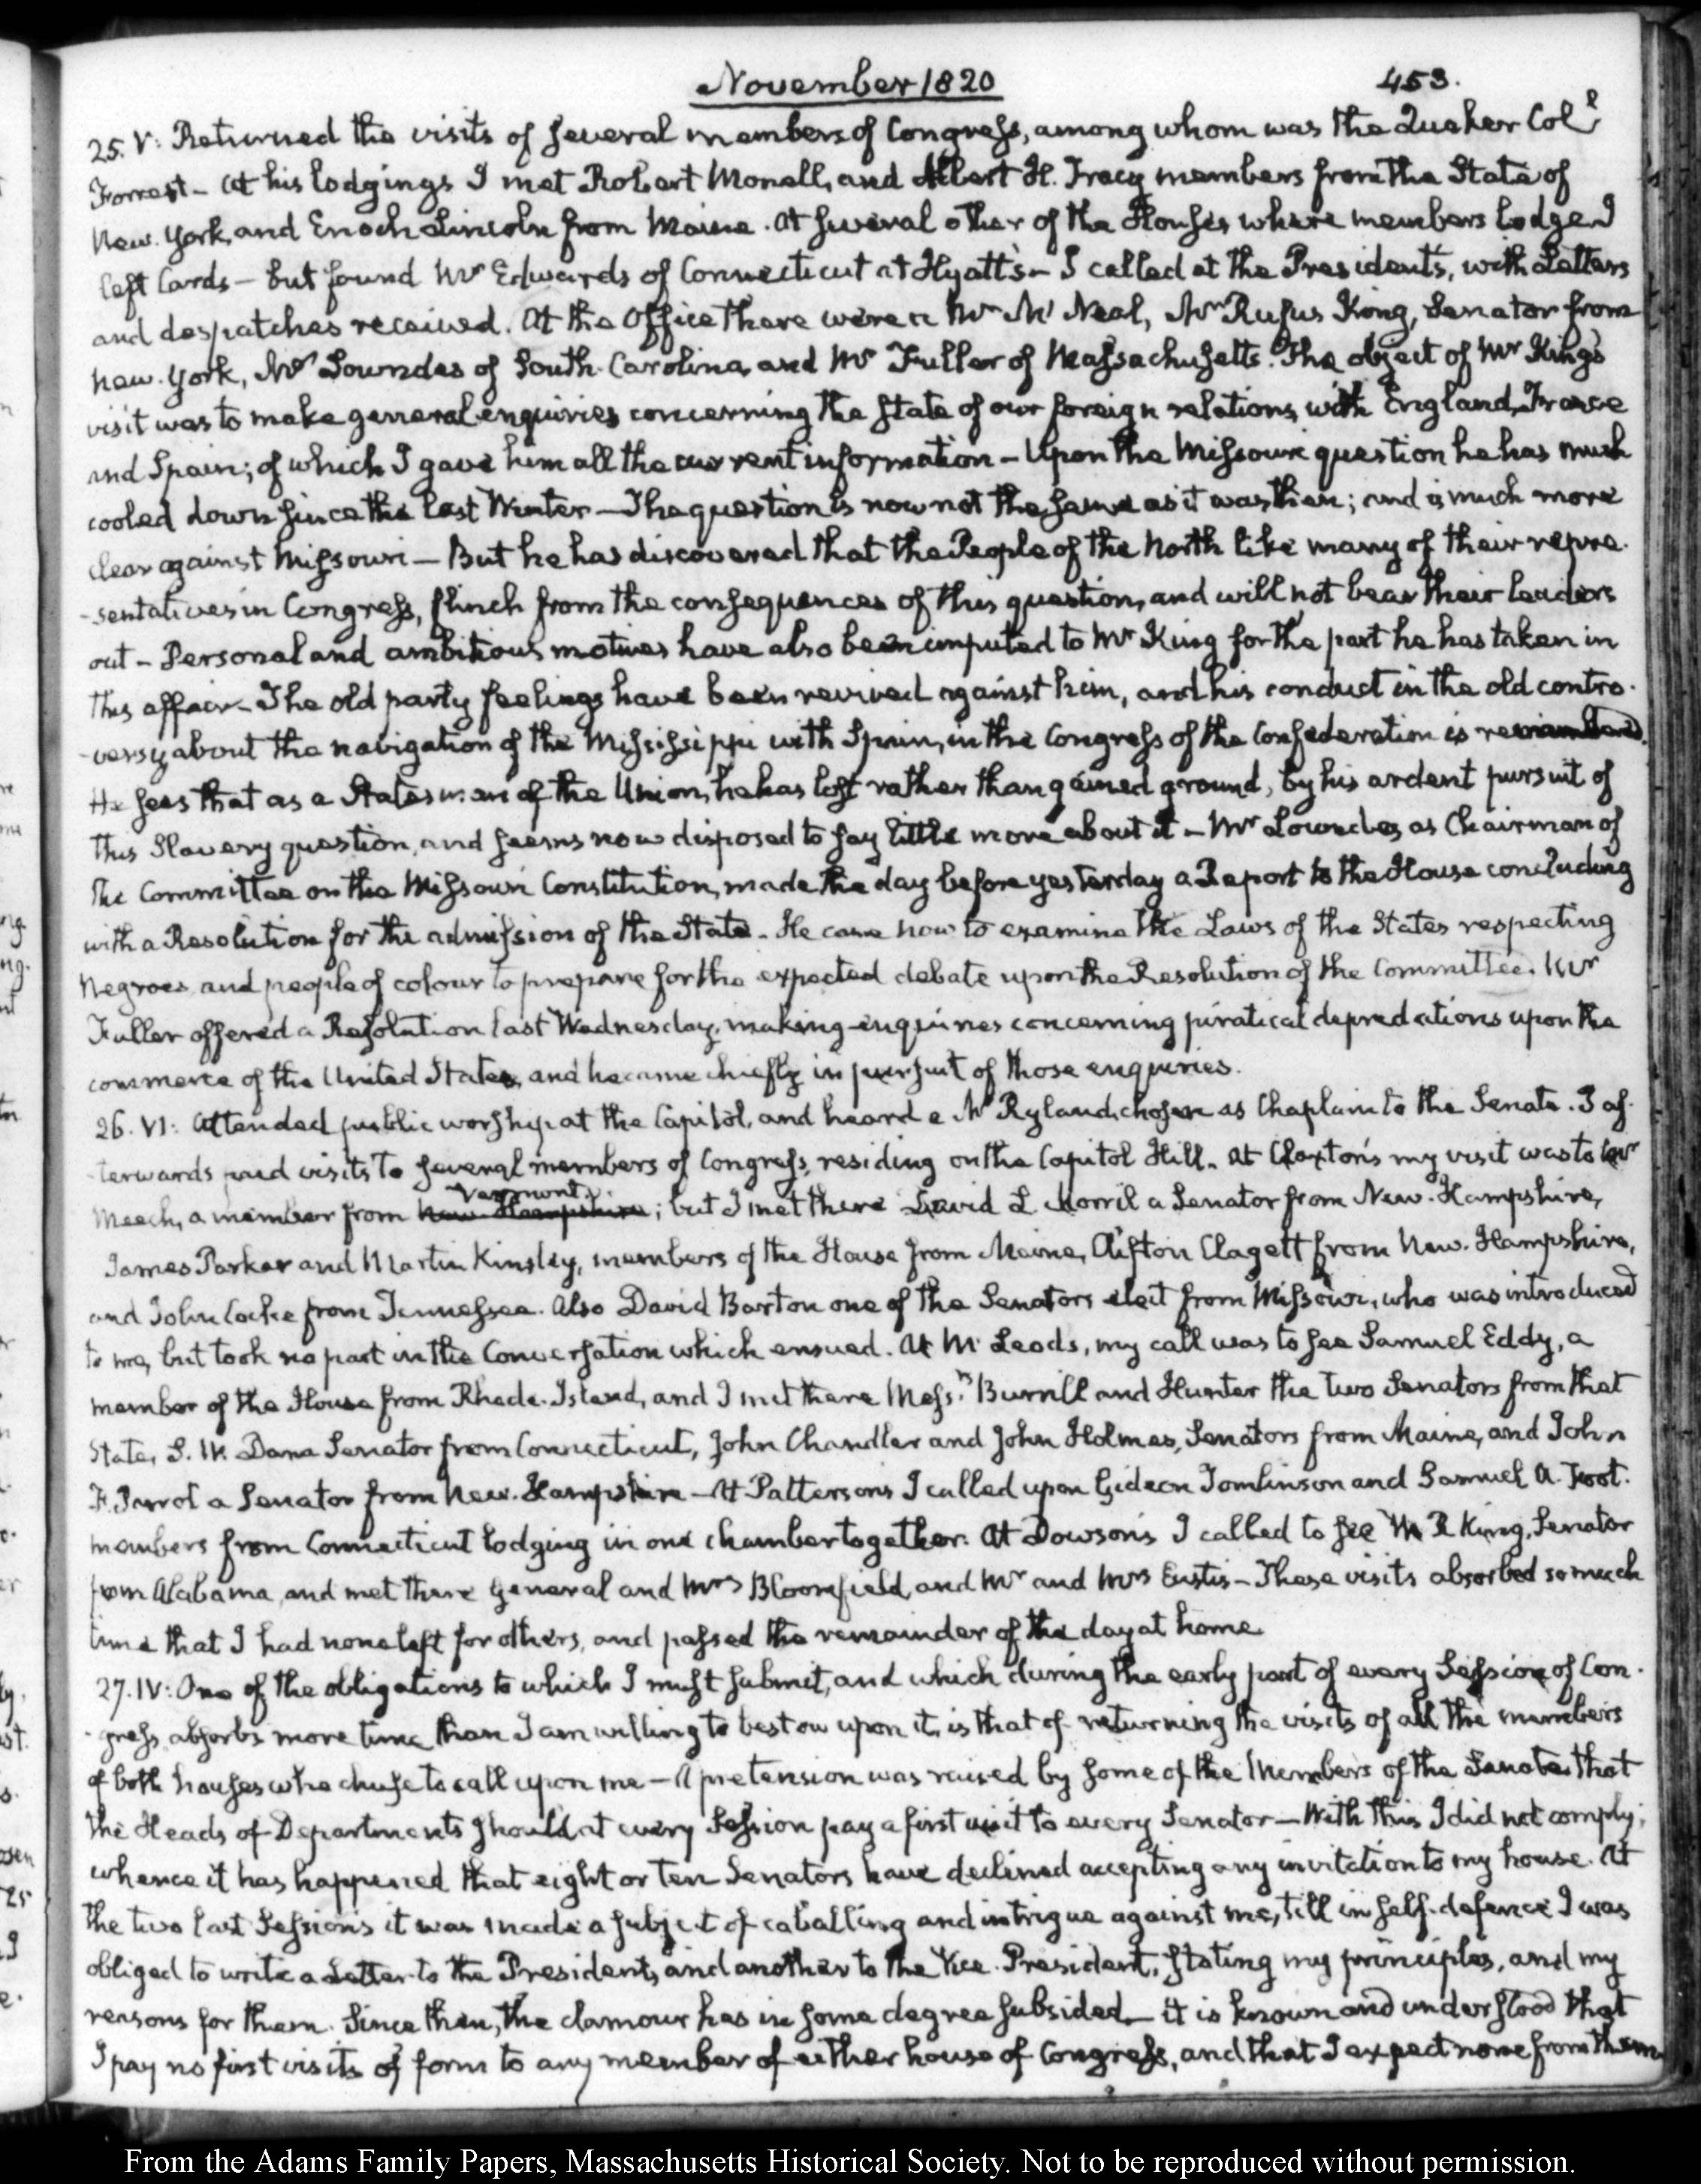 November 1820
453.
25. V: Returned the visits of several members of Congress, among whom was the Quaker Coll
Forrest — At his lodgings I met Robert Monell, and Albert H. Tracy members from the State of
New. York, and Enoch Lincoln from Maine. At several other of the Houses where members lodge I
left Cards — but found Mr Edwards of Connecticut at Hyatt's — I called at the President's, with Letters
and despatches received. At the Office there were a Mr Mc Neal, Mr Rufus King, Senator from
New. York, Mr Lowndes of South-Carolina, and Mr Fuller of Massachusetts. The object of Mr King's
visit was to make general enquiries concerning the state of our foreign relations with England, France
and Spain; of which I gave him all the current information — Upon the Missouri question he has much
cooled down since the last Winter — The question is now not the same as it was then; and is much more
clear against Missouri — But he has discovered that the People of the North like many of their repre-
-sentatives in Congress, flinch from the consequences of this question, and will not bear their leaders
out — Personal and ambitious motives have also been imputed to Mr King for the part he has taken in
this affair — The old party feelings have been revived against him, and his conduct in the old contro-
-versy about the navigation of the Mississippi with Spain, in the Congress of the Confederation is remembered.
He sees that as a Statesman of the Union, he has lost rather than gained ground, by his ardent pursuit of
this Slavery question, and seems now disposed to say little more about it — Mr Lowndes, as Chairman of
the Committee on the Missouri Constitution, made the day before yesterday a Report to the House concluding
with a Resolution for the admission of the State. He came now to examine the Laws of the States respecting
Negroes, and people of colour to prepare for the expected debate upon the Resolution of the Committee. Mr
Fuller offered a Resolution last Wednesday, making enquiries concerning piratical depredations upon the
commerce of the United States, and he came chiefly in pursuit of those enquiries.
26. VI: Attended public worship at the Capitol, and heard a Mr Ryland, chosen as Chaplain to the Senate. I af-
-terwards paid visits to several members of Congress, residing on the Capitol Hill. At Claxton's my visit was to Mr
Vermont.
Meech, a member from New-Hampshire; but I met there David L Morril a Senator from New-Hampshire,
James Parker and Martin Kinsley, members of the House from Maine, Clifton Clagett from New-Hampshire,
and John Cocke from Tennessee. Also David Barton one of the Senators elect from Missouri, who was introduced
to me, but took no part in the Conversation which ensued. At Mc Leods, my call was to see Samuel Eddy, a
member of the House from Rhode-Island, and I met there Messrs Burrill and Hunter the two Senators from that
State, S. W. Dana Senator from Connecticut, John Chandler and John Holmes, Senators from Maine, and John
F. Parrot a Senator from New-Hampshire — At Patterson's I called upon Gideon Tomlinson and Samuel A. Foot.
members from Connecticut lodging in one chamber together. At Dowson's I called to see W R King, Senator
from Alabama, and met there General and Mrs Bloomfield, and Mr and Mrs Eustis — These visits absorbed so much
time that I had none left for others, and passed the remainder of the day at home.
27. IV: One of the obligations to which I must submit, and which during the early part of every Session of Con-
-gress absorbs more time than I am willing to bestow upon it, is that of returning the visits of all the members
of both houses who chuse to call upon me — A pretension was raised by some of the Members of the Senate, that
the Heads of Departments should at every Session pay a first visit to every Senator — With this I did not comply;
whence it has happened that eight or ten Senators have declined accepting any invitation to my house. At
the two last Sessions it was made a subject of caballing and intrigue against me, till in self-defence I was
obliged to write a Letter to the President, and another to the Vice-President, stating my principles, and my
reasons for them. Since then, the clamour has in some degree subsided — it is known and understood that
I pay no first visits of form to any member of either house of Congress, and that I expect none from them
From the Adams Family Papers, Massachusetts Historical Society. Not to be reproduced without permission.